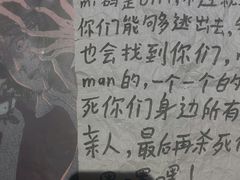 你们能够逃出去,
也会找到你们,
man的,一个一个的
死你们身边所有
亲人,最后再杀死